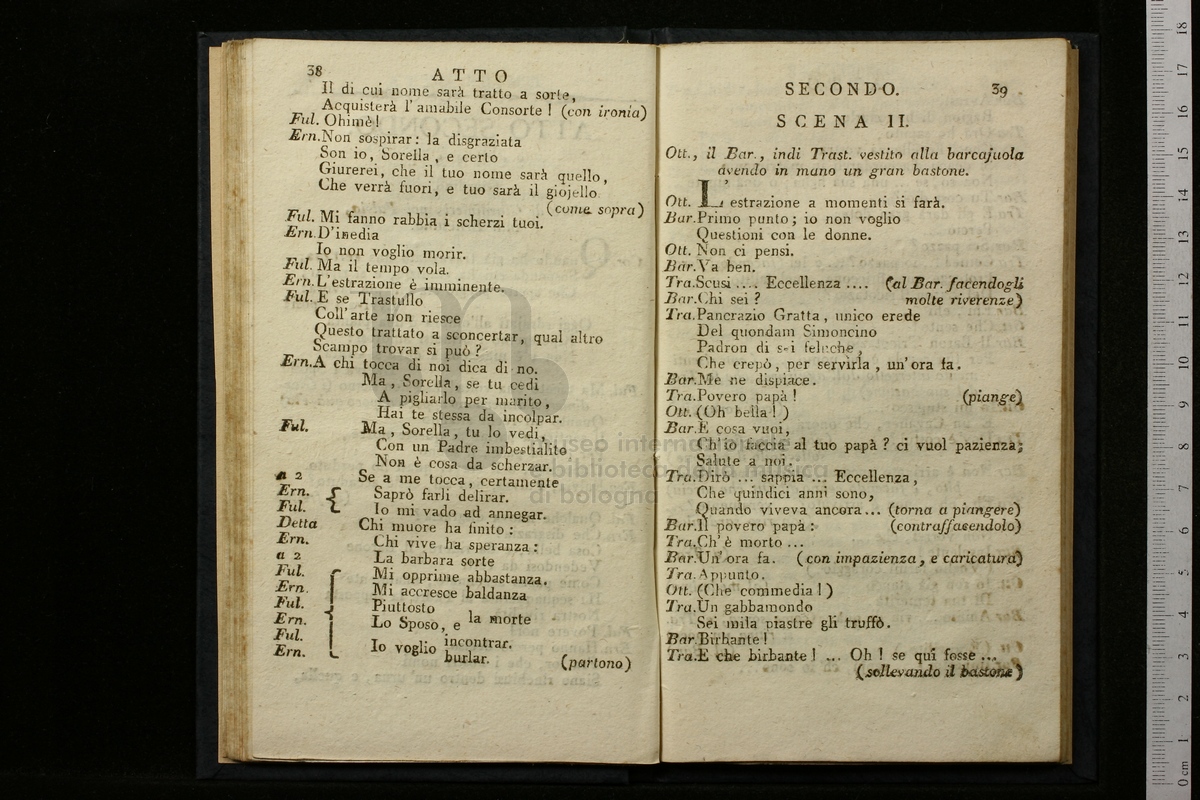 38 ATTO
Il di cui nome sarà tratto a sorte,
Acquisterà l'amabile Consorte! (con ironia)
Ful. Ohimè!
Ern. Non sospirar: la disgraziata
Son io, Sorella, e certo
Giurerei, che il tuo nome sarà quello,
Che verrà fuori, e tuo sarà il giojello
(come sopra)
Ful. Mi fanno rabbia i scherzi tuoi.
Ern. D'inedia
Io non voglio morir.
Ful. Ma il tempo vola.
Ern. L'estrazione è imminente.
Ful. E se Trastullo
Coll'arte non riesce
Questo trattato a sconcertar, qual altro
Scampo trovar si può?
Ern. A chi tocca di noi dica di no.
Ma, Sorella, se tu cedi
A pigliarlo per marito,
Hai te stessa da incolpar.
Ful. Ma, Sorella, tu lo vedi,
Con un Padre imbestialito
Non è cosa da scherzar.
a 2 Se a me tocca, certamente
Ern. Saprò farli delirar.
Ful. Io mi vado ad annegar.
Detta Chi muore ha finito:
Ern. Chi vive ha speranza:
a 2 La barbara sorte
Ful. Mi opprime abbastanza.
Ern. Mi accresce baldanza
Ful. Piuttosto
Ern. Lo Sposo, e la morte
Ful. Io voglio incontrar.
Ern. burlar. (partono)
SECONDO. 39
SCENA II.
Ott., il Bar., indi Trast. vestito alla barcajuola
avendo in mano un gran bastone.
Ott. L'estrazione a momenti si farà.
Bar. Primo punto; io non voglio
Questioni con le donne.
Ott. Non ci pensi.
Bar. Va ben.
Tra. Scusi .... Eccellenza .... (al Bar. facendogli
Bar. Chi sei? molte riverenze)
Tra. Pancrazio Gratta, unico erede
Del quondam Simoncino
Padron di sei feluche,
Che crepò, per servirla, un'ora fa.
Bar. Me ne dispiace.
Tra. Povero papà! (piange)
Ott. (Oh bella!)
Bar. E cosa vuoi,
Ch'io faccia al tuo papà? ci vuol pazienza;
Salute a noi.
Tra. Dirò ... sappia ... Eccellenza,
Che quindici anni sono,
Quando viveva ancora... (torna a piangere)
Bar. Il povero papà: (contraffasendolo)
Tra. Ch'è morto ...
Bar. Un'ora fa. (con impazienza, e caricatura)
Tra. Appunto.
Ott. (Che commedia!)
Tra. Un gabbamondo
Sei mila piastre gli truffò.
Bar. Birbante!
Tra. E che birbante! ... Oh! se quì fosse ...
(sollevando il bastone)
museo internazionale
e biblioteca della musica
di bologna
0 cm 1 2 3 4 5 6 7 8 9 10 11 12 13 14 15 16 17 18